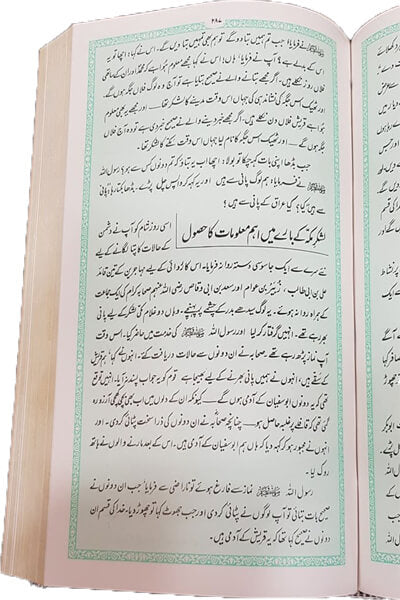 ۲۸۷
ﷺ نے فرمایا: جب تم ہمیں بتا دو گے تو ہم بھی تمہیں بتا دیں گے۔ اس نے کہا: اچھا تو یہ
اس کے بدلے ہے؟ آپ نے فرمایا: ہاں! اس نے کہا مجھے معلوم ہوا ہے کہ محمد اور ان کے ساتھی
فلاں روز نکلے ہیں۔ اگر مجھے بتانے والے نے صحیح بتایا ہے تو آج وہ لوگ فلاں جگہ ہوں گے
اور ٹھیک اس جگہ کی نشاندہی کی جہاں اس وقت مدینے کا لشکر تھا۔ اور مجھے یہ بھی معلوم
ہوا ہے کہ قریش فلاں دن نکلے ہیں۔ اگر مجھے خبر دینے والے نے صحیح خبر دی ہے تو وہ آج فلاں
جگہ ہوں گے — اور ٹھیک اس جگہ کا نام لیا جہاں اس وقت مکے کا لشکر تھا۔
جب بڈھا اپنی بات کہہ چکا تو بولا: اچھا اب یہ بتاؤ کہ تم دونوں کس سے ہو؟ رسول اللہ
ﷺ نے فرمایا: ہم لوگ پانی سے ہیں اور یہ کہہ کر واپس چل پڑے۔ بڈھا بکتا رہا "پانی
سے ہیں؟" کیا؟ کیا عراق کے پانی سے ہیں؟
لشکر مکہ کے بارے میں اہم معلومات کا حصول
اسی روز شام کو آپ نے دشمن
کے حالات کا پتا لگانے کے لیے
نئے سرے سے ایک جاسوسی دستہ روانہ فرمایا۔ اس کارروائی کے لیے مہاجرین کے تین قائد
علی بن ابی طالب، زبیر بن عوام اور سعد بن ابی وقاص رضی اللہ عنہم صحابہ کرام کی ایک جماعت
کے ہمراہ روانہ ہوئے۔ یہ لوگ سیدھے بدر کے چشمے پر پہنچے۔ وہاں دو غلام مکی لشکر کے لیے پانی
بھر رہے تھے۔ انہیں گرفتار کر لیا اور رسول اللہ ﷺ کی خدمت میں حاضر کیا۔ اس وقت
آپ نماز پڑھ رہے تھے۔ صحابہ نے ان دونوں سے حالات دریافت کئے۔ انہوں نے کہا ہم قریش
کے سقے ہیں، انہوں نے ہمیں پانی بھرنے کے لیے بھیجا ہے۔ قوم کو یہ جواب پسند نہ آیا۔ انہیں توقع
تھی کہ یہ دونوں ابوسفیان کے آدمی ہوں گے — کیونکہ ان کے دلوں میں اب بھی بچی کھچی آرزو رہ
گئی تھی کہ قافلے پر غلبہ حاصل ہو — چنانچہ صحابہؓ نے ان دونوں کی ذرا سخت پٹائی کر دی۔ اور
انہوں نے مجبور ہو کر کہہ دیا کہ ہاں ہم ابوسفیان کے آدمی ہیں۔ اس کے بعد مارنے والوں نے ہاتھ
روک لیا۔
رسول اللہ ﷺ نماز سے فارغ ہوئے تو ناراضی سے فرمایا: جب ان دونوں نے
صحیح بات بتائی تو آپ لوگوں نے پٹائی کر دی اور جب جھوٹ کہا تو چھوڑ دیا۔ خدا کی قسم ان
دونوں نے صحیح کہا تھا کہ یہ قریش کے آدمی ہیں۔